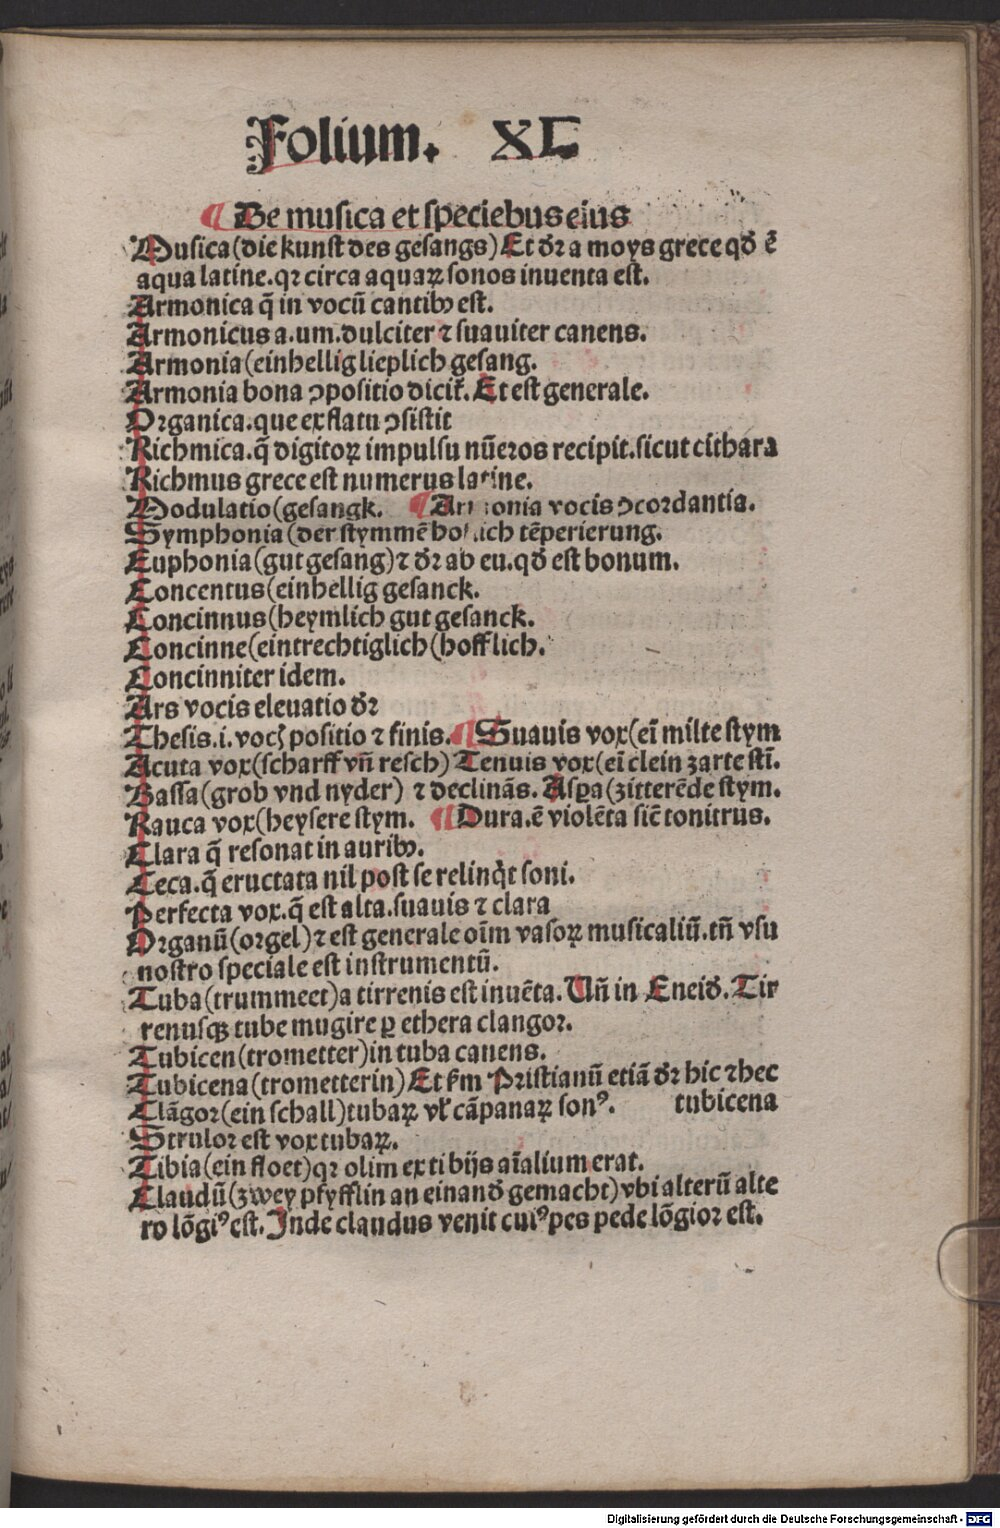 Folium. XL
¶ De musica et speciebus eius
Musica (die kunst des gesangs) Et dr̄ a moys grece qd̄ ē
aqua latine. qꝛ circa aquaꝝ sonos inuenta est.
Armonica q̄ in vocū cantibꝰ est.
Armonicus a.um. dulciter ⁊ suauiter canens.
Armonia (einhellig lieplich gesang.
Armonia bona ꝯpositio dicit̄. Et est generale.
Organica. que ex flatu ꝯsistit
Richmica. q̄ digitoꝝ impulsu nūeros recipit. sicut cithara
Richmus grece est numerus latine.
Modulatio (gesangk. ¶ Armonia vocis ꝯcordantia.
Symphonia (der stymmē hoflich tēperierung.
Euphonia (gut gesang) ⁊ dr̄ ab eu. qd̄ est bonum.
Concentus (einhellig gesanck.
Concinnus (heymlich gut gesanck.
Concinne (eintrechtiglich (hofflich.
Concinniter idem.
Ars vocis eleuatio dr̄
Thesis. i. vocꝭ positio ⁊ finis. ¶ Suauis vox (eī milte stym
Acuta vox (scharff vn̄ resch) Tenuis vox (eī clein zarte stī.
Bassa (grob vnd nyder) ⁊ declinās. Asꝑa (zitterēde stym.
Rauca vox (heysere stym. ¶ Dura. ē violēta sic̄ tonitrus.
Clara q̄ resonat in auribꝰ.
Ceca. q̄ eructata nil post se relinq̇t soni.
Perfecta vox. q̄ est alta. suauis ⁊ clara
Organū (orgel) ⁊ est generale oīm vasoꝝ musicaliū. tn̄ vsu
nostro speciale est instrumentū.
Tuba (trummeet) a tirrenis est inuēta. Un̄ in Eneid̄. Tir
renusqꝫ tube mugire ꝑ ethera clangor.
Tubicen (trometter) in tuba canens.
Tubicena (trometterin) Et s̄m Pristianū etiā dr̄ hic ⁊ hec
Clāgor (ein schall) tubaꝝ vl̄ cāpanaꝝ sonꝰ. tubicena
Strulor est vox tubaꝝ.
Tibia (ein floet) qꝛ olim ex tibijs aīalium erat.
Claudū (zwey pfyfflin an einand̄ gemacht) vbi alterū alte
ro lōgiꝰ est. Inde claudus venit cuiꝰ pes pede lōgior est.
Digitalisierung gefördert durch die Deutsche Forschungsgemeinschaft - DFG